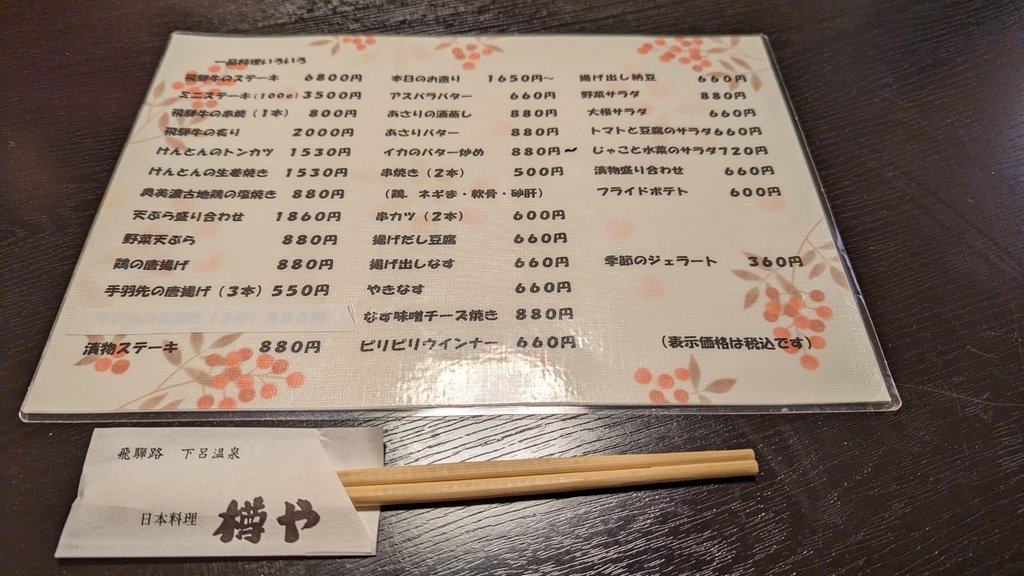 一品料理いろいろ
飛騨牛のステーキ 6800円
ミニステーキ(100g) 3500円
飛騨牛の串焼(1本) 800円
飛騨牛の炙り 2000円
けんとんのトンカツ 1530円
けんとんの生姜焼き 1530円
奥美濃古地鶏の塩焼き 880円
天ぷら盛り合わせ 1860円
野菜天ぷら 880円
鶏の唐揚げ 880円
手羽先の唐揚げ(3本) 550円
(3本) 550円
漬物ステーキ 880円
本日のお造り 1650円~
アスパラバター 660円
あさりの酒蒸し 880円
あさりバター 880円
イカのバター炒め 880円~
串焼き(2本) 500円
(鶏、ネギま・軟骨・砂肝)
串カツ(2本) 600円
揚げだし豆腐 660円
揚げ出しなす 660円
やきなす 660円
なす味噌チーズ焼き 880円
ピリピリウインナー 660円
揚げ出し納豆 660円
野菜サラダ 880円
大根サラダ 660円
トマトと豆腐のサラダ660円
じゃこと水菜のサラダ720円
漬物盛り合わせ 660円
フライドポテト 600円
季節のジェラート 360円
(表示価格は税込です)
飛騨路 下呂温泉
日本料理 樽や